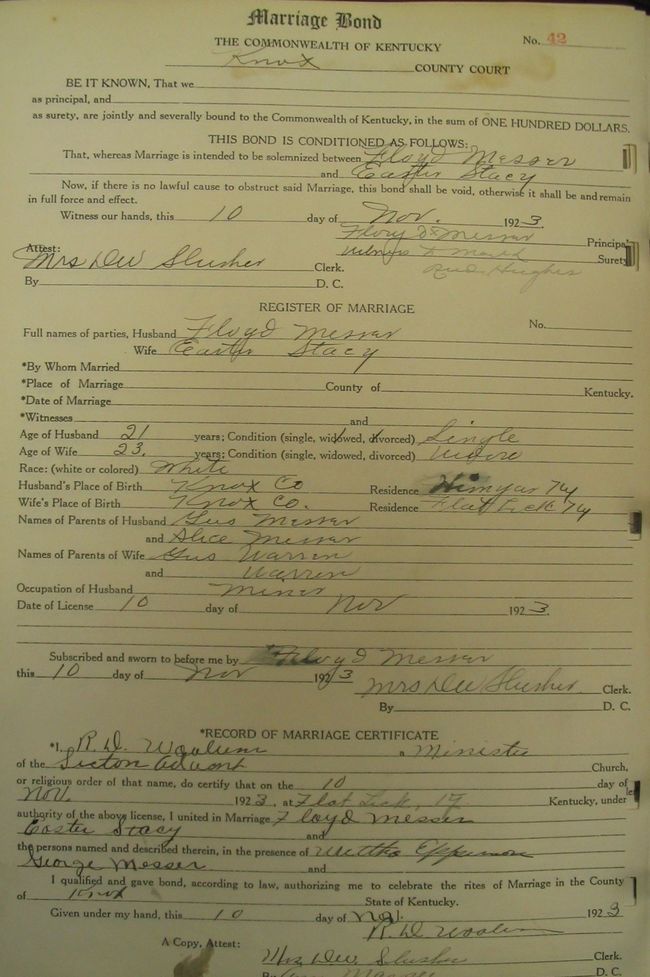 Marriage Bond
THE COMMONWEALTH OF KENTUCKY No. 42
Knox COUNTY COURT
BE IT KNOWN, That we
as principal, and
as surety, are jointly and severally bound to the Commonwealth of Kentucky, in the sum of ONE HUNDRED DOLLARS.
THIS BOND IS CONDITIONED AS FOLLOWS:
That, whereas Marriage is intended to be solemnized between Floyd Messer
and Easter Stacy
Now, if there is no lawful cause to obstruct said Marriage, this bond shall be void, otherwise it shall be and remain
in full force and effect.
Witness our hands, this 10 day of Nov. 1923.
Messer Principal
Surety
Hughes
Attest:
Mrs D W Slusher Clerk.
By D. C.
REGISTER OF MARRIAGE
Full names of parties, Husband Floyd Messer No.
Wife Easter Stacy
*By Whom Married
*Place of Marriage County of Kentucky.
*Date of Marriage
*Witnesses and
Age of Husband 21 years; Condition (single, widowed, divorced) Single
Age of Wife 23. years; Condition (single, widowed, divorced)
Race: (white or colored) White
Husband's Place of Birth Knox Co Residence Himyar Ky
Wife's Place of Birth Knox Co. Residence Flat Lick Ky
Names of Parents of Husband Gus Messer
and Alice Messer
Names of Parents of Wife Gus Warren
and Warren
Occupation of Husband Miner
Date of License 10 day of Nov 1923.
Subscribed and sworn to before me by Floyd Messer
this 10 day of Nov 1923
Mrs D W Slusher Clerk.
By D. C.
*RECORD OF MARRIAGE CERTIFICATE
*I, R. D. Woolum a Minister
of the Church,
or religious order of that name, do certify that on the 10 day of
Nov. 1923, at Flat Lick, Ky. Kentucky, under
authority of the above license, I united in Marriage Floyd Messer
Easter Stacy and
the persons named and described therein, in the presence of Epperson
George Messer and
I qualified and gave bond, according to law, authorizing me to celebrate the rites of Marriage in the County
of Knox State of Kentucky.
Given under my hand, this 10 day of Nov. 1923
R. D. Woolum
A Copy, Attest:
Mrs D W Slusher Clerk.
By D. C.